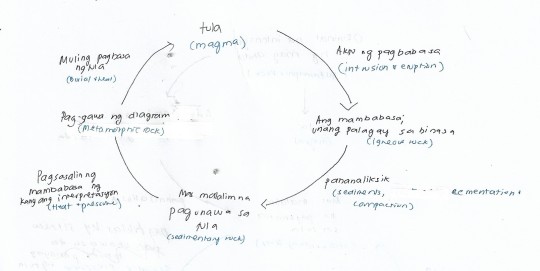 tula
(magma)
Akto ng pagbabasa
(intrusion & eruption)
Ang mambabasa;
unang palagay sa binasa
(igneous rock)
pananaliksik
(sediments, .... cementation &
compaction)
Mas malalim na
pagunawa sa
tula
(sedimentary rock)
Pagsasalin ng
mambabasa ng
kanyang interpretasyon
(heat & pressure)
Pag-gawa ng diagram
(metamorphic rock)
Muling pagbasa
ng tula
(burial & heat)